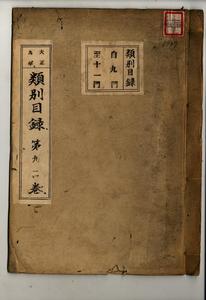 大正
類別目録
第九一一巻
類別目録
自九門
至十一門